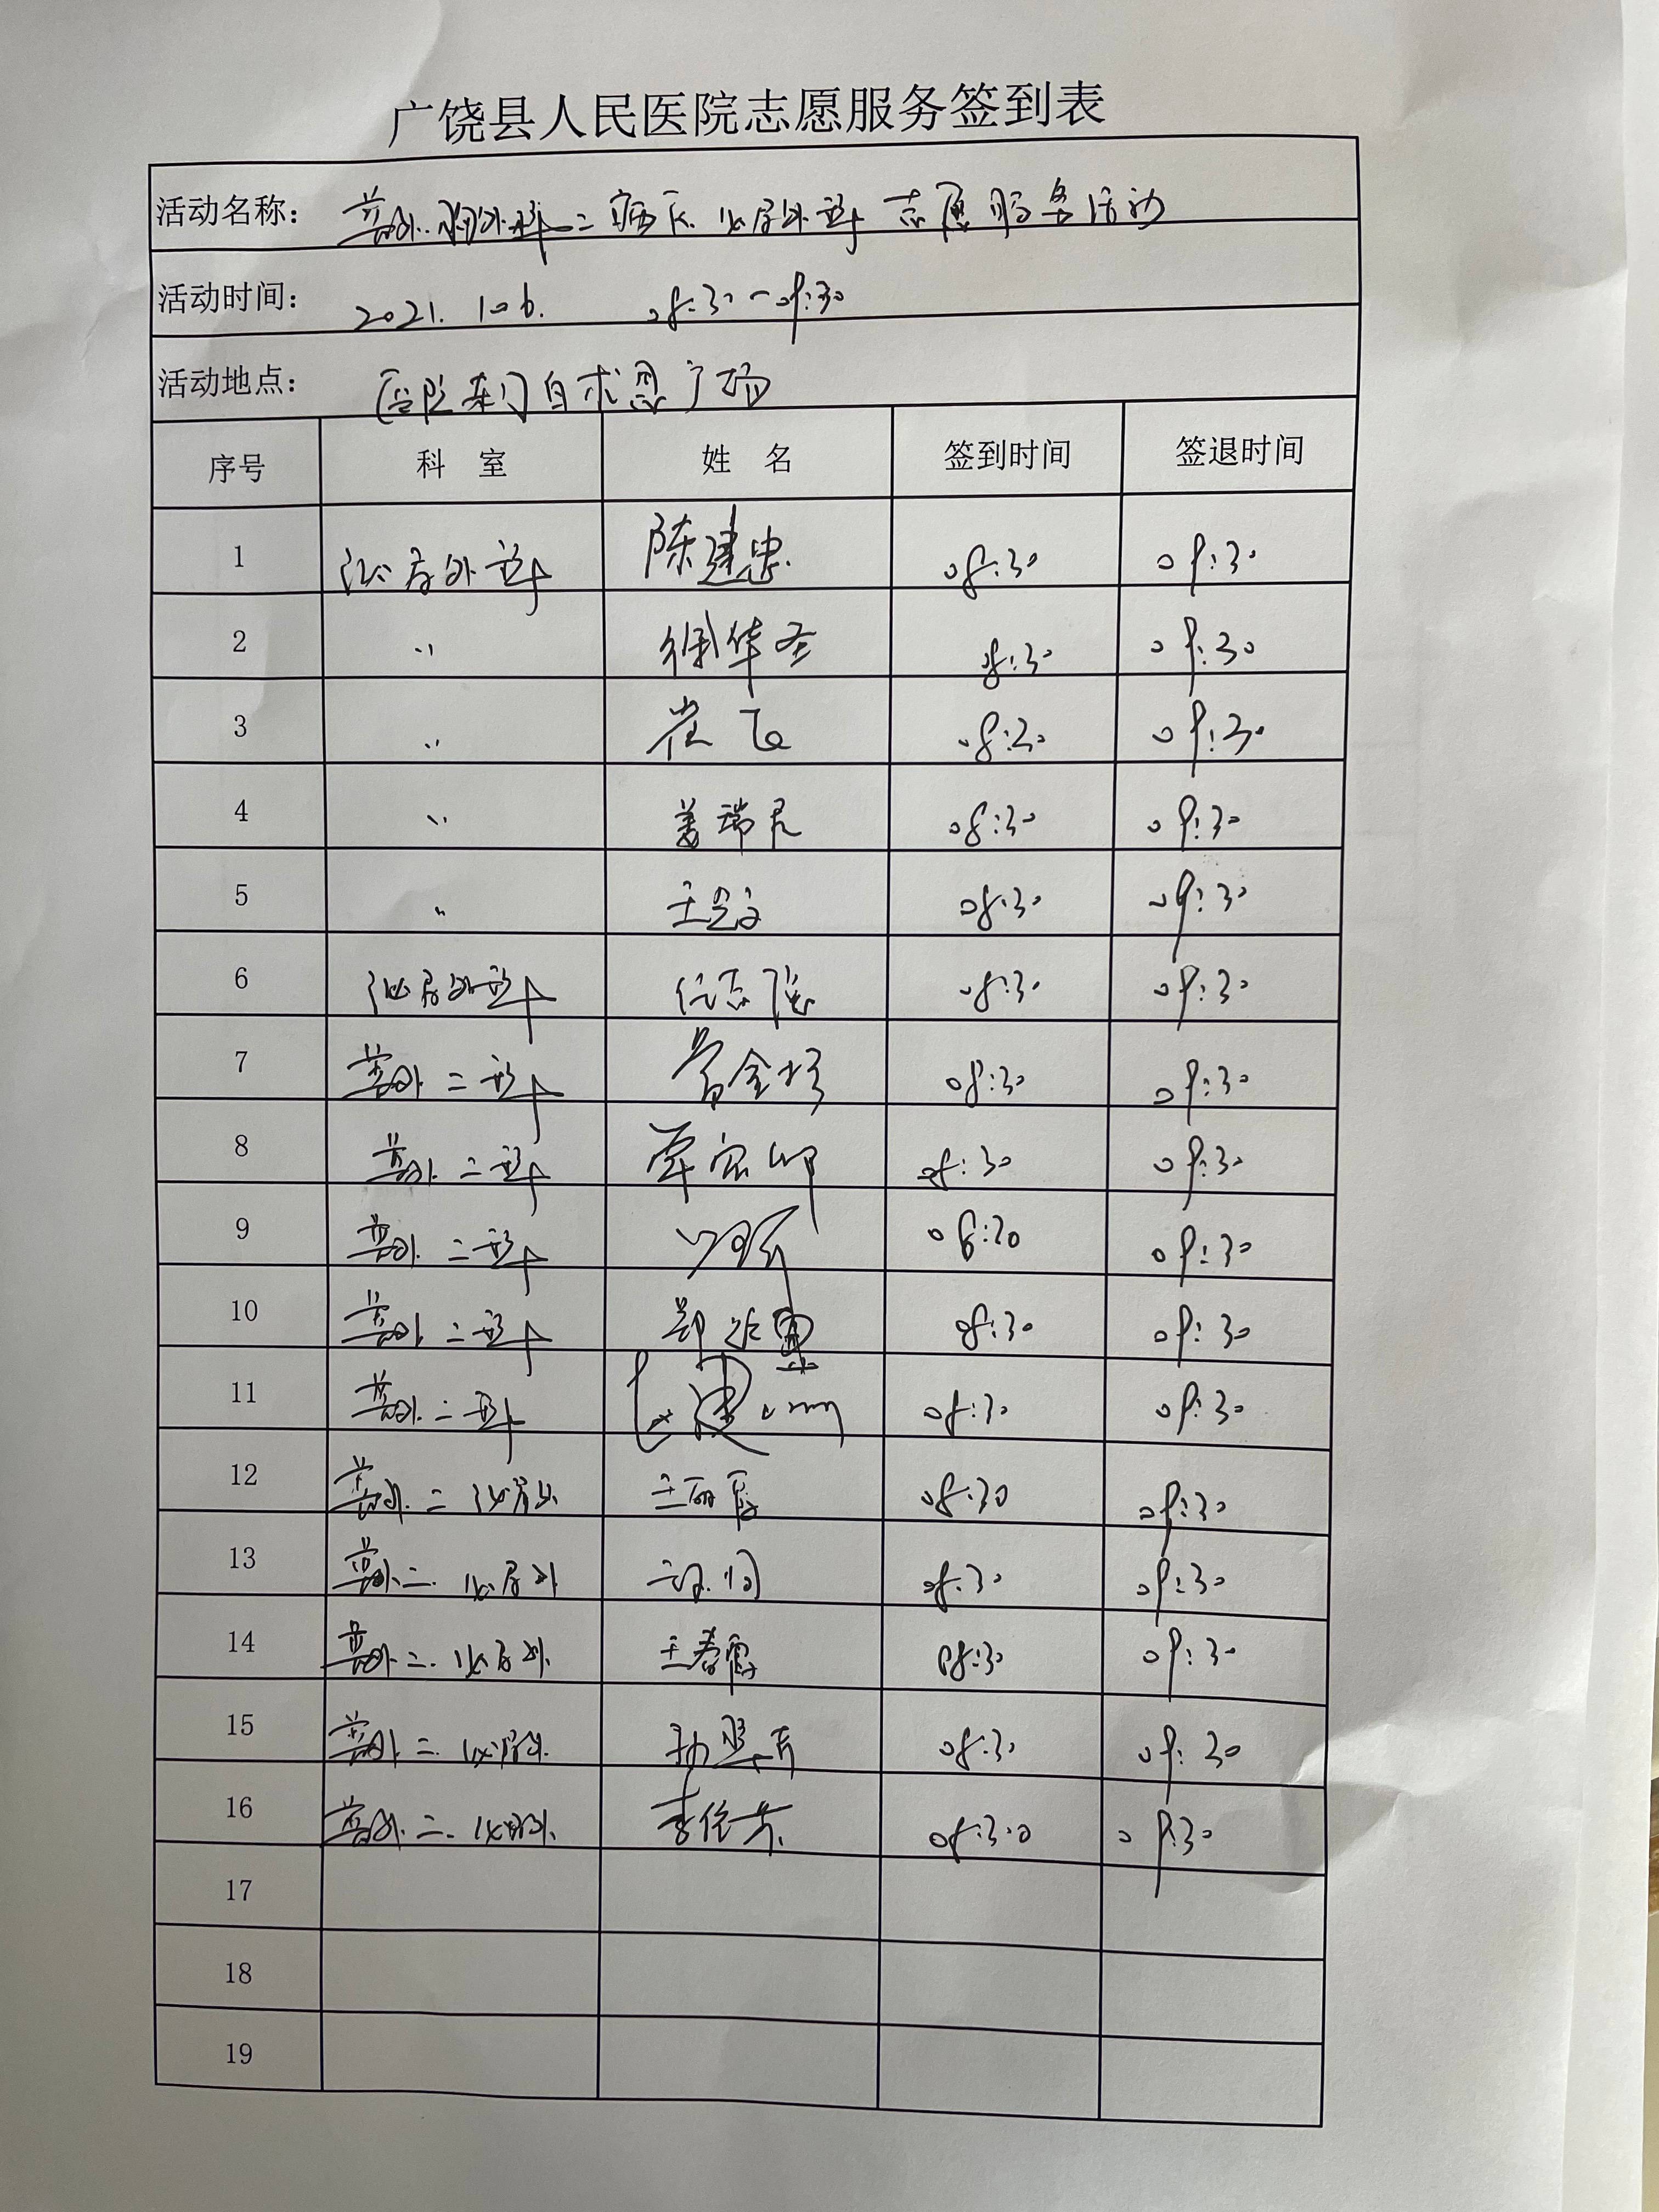 广饶县人民医院志愿服务签到表
活动名称: 普外.胸外科二病区 泌尿外科 志愿服务活动
活动时间: 2021. 10.6. 08:30-09:30
活动地点: 医院东门白求恩广场
序号 科 室 姓 名 签到时间 签退时间
1 泌尿外科 陈建忠 08:30 09:30
2 〃 徐华圣 08:30 09:30
3 〃 崔飞 08:30 09:30
4 〃 姜瑞民 08:30 09:30
5 〃 08:30 09:30
6 泌尿外科 任志强 08:30 09:30
7 普外二科 08:30 09:30
8 普外二科 08:30 09:30
9 普外二科 08:30 09:30
10 普外二科 08:30 09:30
11 普外二科 08:30 09:30
12 普外二 泌尿外 王丽霞 08:30 09:30
13 普外二. 泌尿外 08:30 09:30
14 普外二. 泌尿外. 王春霞 08:30 09:30
15 普外二. 泌尿外. 08:30 09:30
16 普外二. 泌尿外. 08:30 09:30
17
18
19